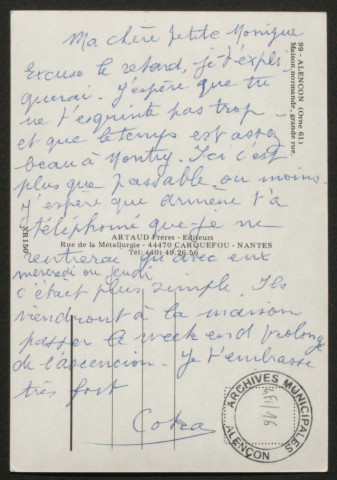 Ma chère petite Monique
Excuse le retard, je t'expli
querai. J'espère que tu
ne t'esquinte pas trop
et que le temps est assez
beau à Montry. Ici c'est
plus que passable, ou moins
j'espère que t'a
téléphoné que je ne
rentrerai qu'avec eux
mercredi ou jeudi
c'était plus simple. Ils
viendront à la maison
passer le week end prolongé
de l'ascencion. Je t'embrasse
très fort
99 - ALENCON (Orne 61)
Maison normande, grande rue.
ARTAUD Frères - Editeurs
Rue de la Métallurgie - 44470 CARQUEFOU - NANTES
Tél. (40) 49.26.56
ARCHIVES MUNICIPALES
ALENÇON